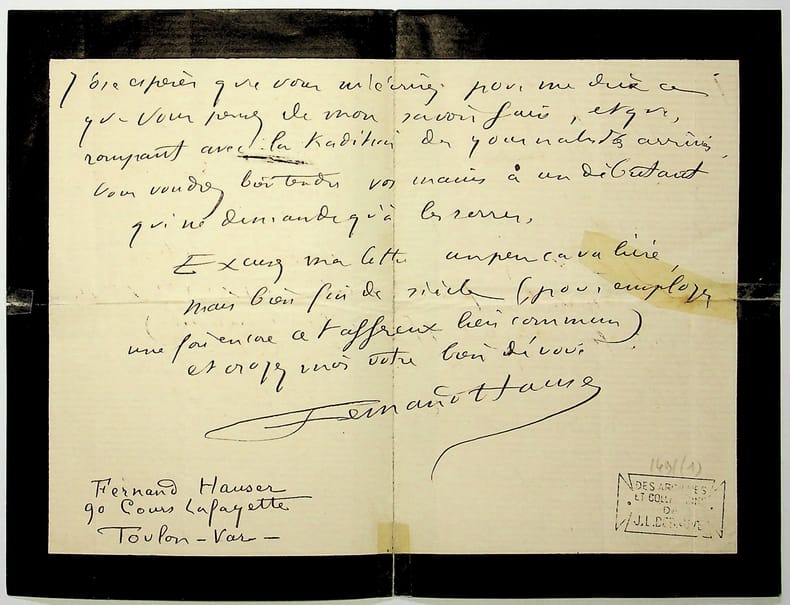 J'ose espérer que vous m'écrirez pour me dire ce
que vous pensez de mon savoir faire, et que,
rompant avec la tradition des journalistes arrivés,
vous voudrez bien tendre vos mains à un débutant
qui ne demande qu'à les serrer.
Excusez ma lettre un peu cavalière,
mais bien fin de siècle (pour employer
une fois encore cet affreux lieu commun)
et croyez moi votre bien dévoué
Fernand Hauser
Fernand Hauser
90 Cours Lafayette
Toulon - Var -
149/(1)
DES ARCHIVES
ET COLLECTIONS
DE
J.L.